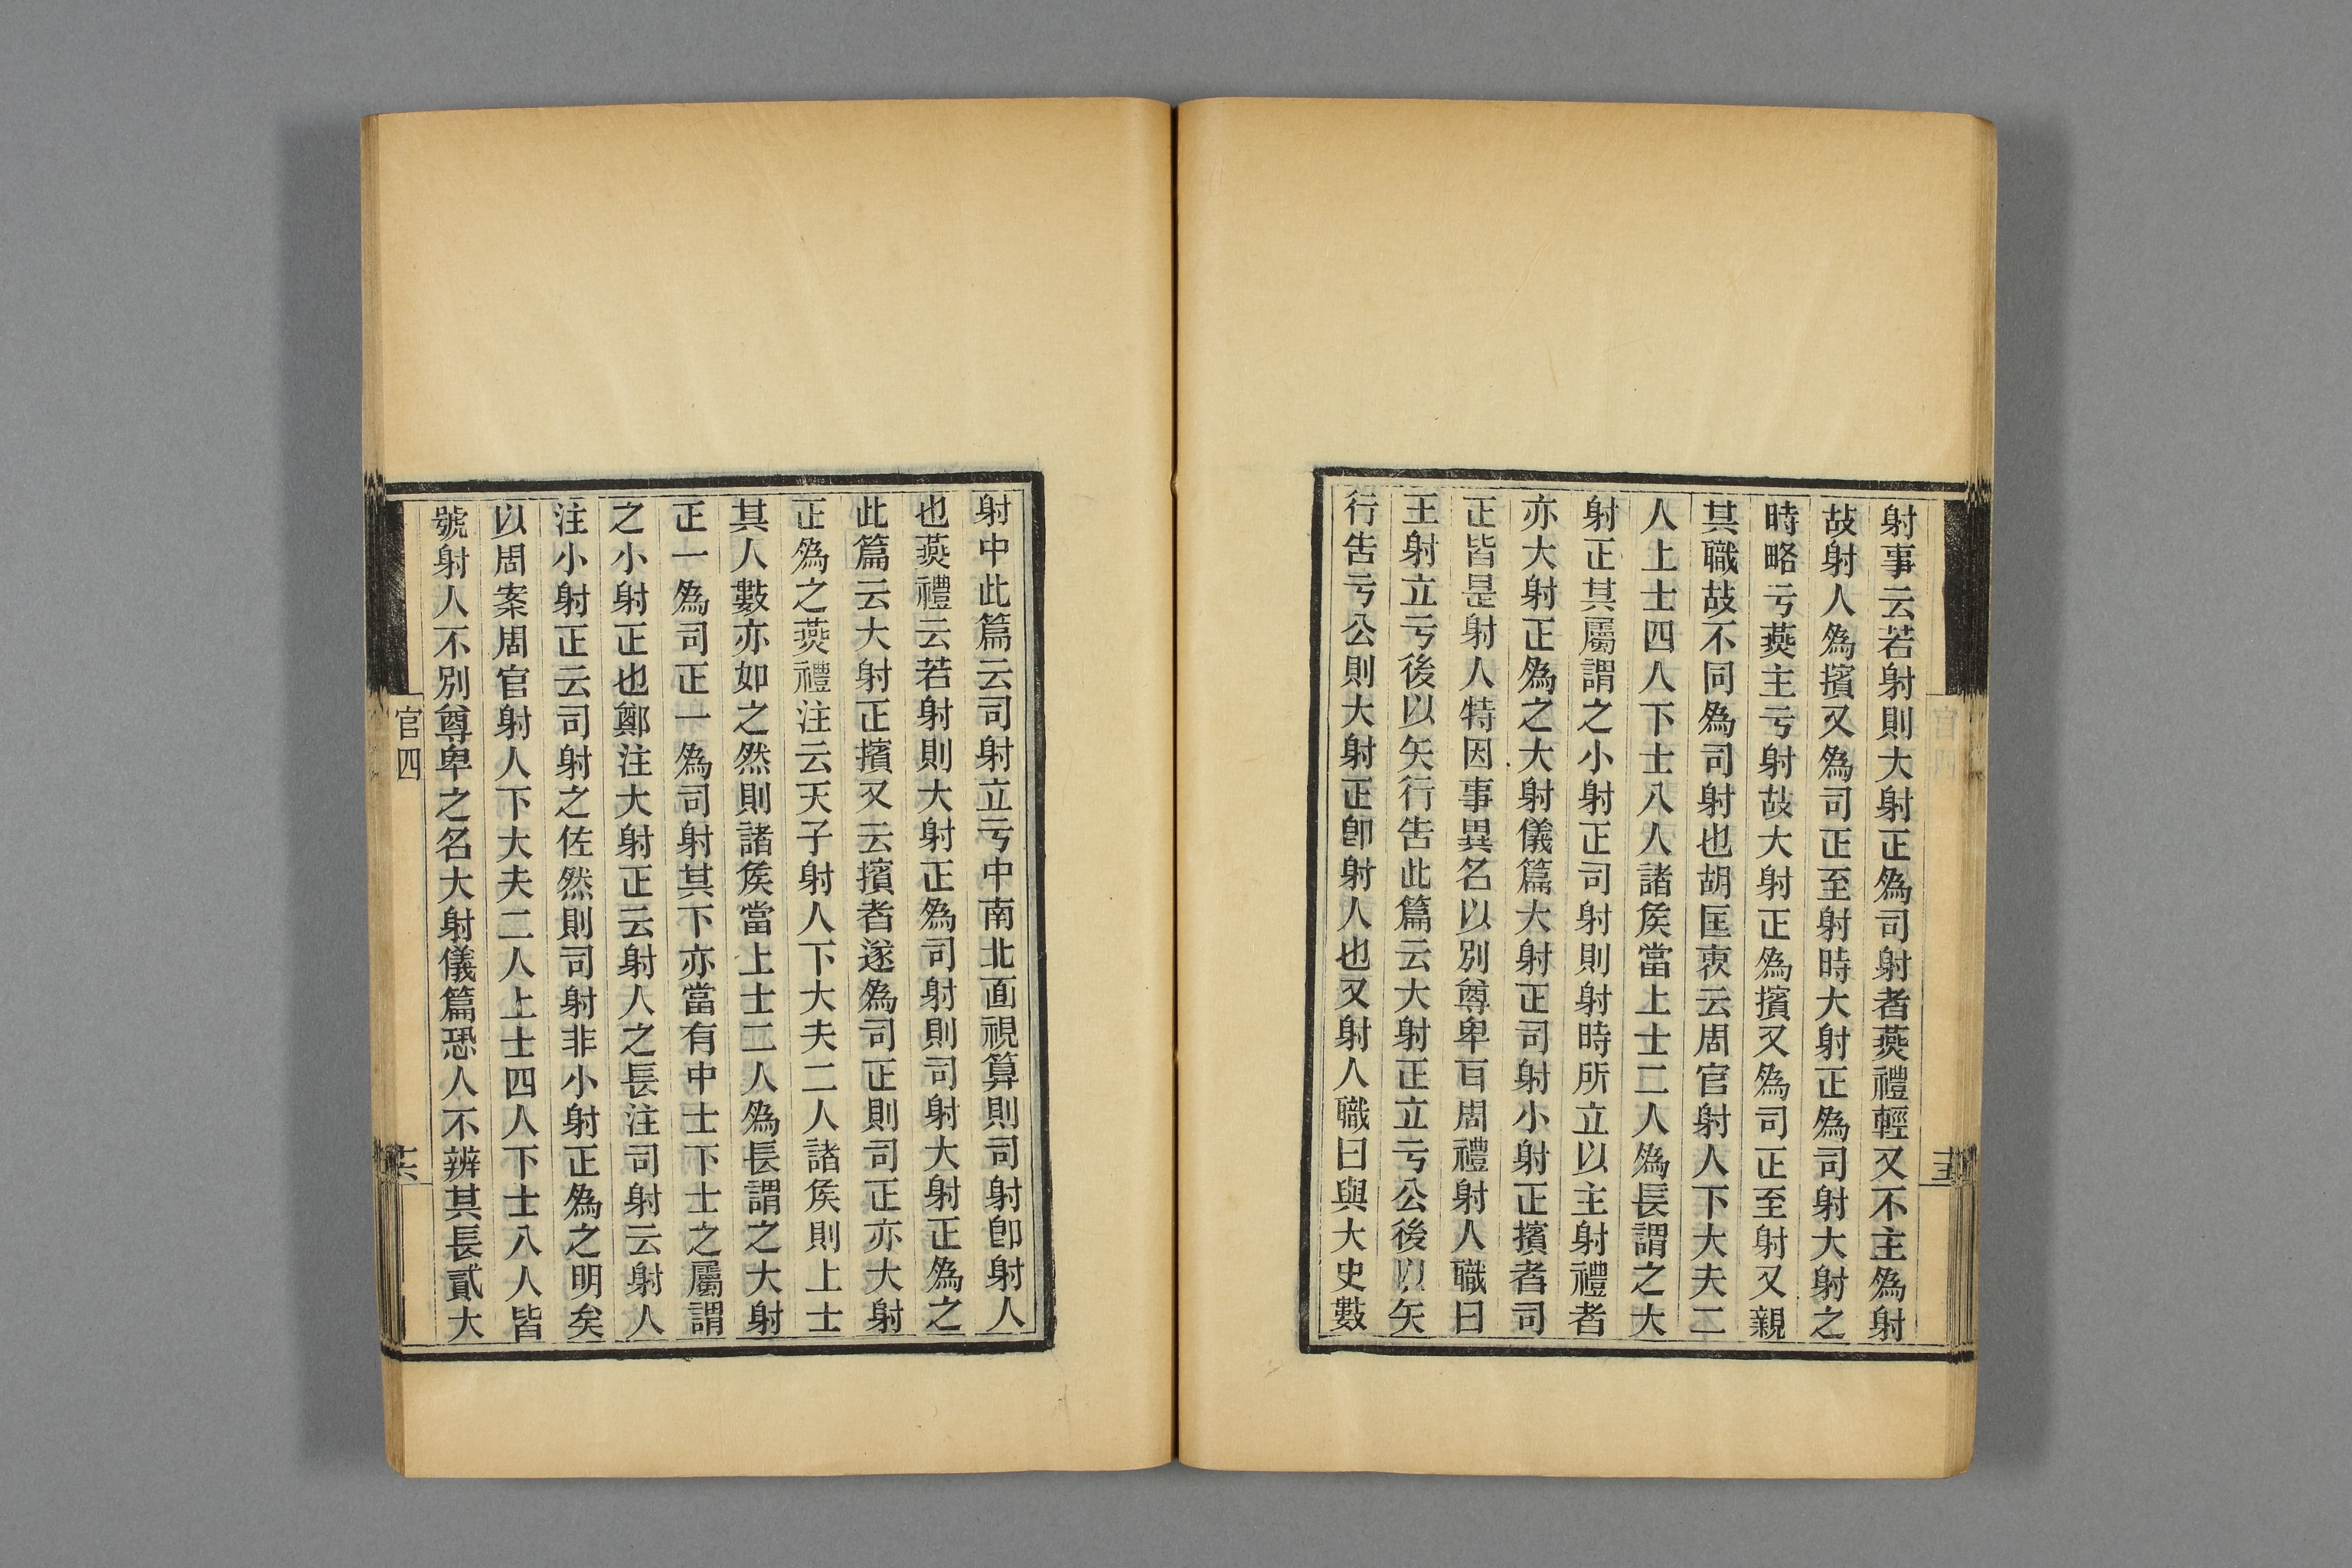 射事云若射則大射正為司射者燕禮輕又不主為射
故射人為擯又為司正至射時大射正為司射大射之
時略亏燕主亏射故大射正為擯又為司正至射又親
其職故不同為司射也胡匡衷云周官射人下大夫二
人上士四人下士八人諸矦當上士二人為長謂之大
射正其屬謂之小射正司射則射時所立以主射禮者
亦大射正為之大射儀篇大射正司射小射正擯者司
正皆是射人特因事異名以別尊卑百周禮射人職曰
王射立亏後以矢行告此篇云大射正立亏公後以矢
行告亏公則大射正卽射人也又射人職曰與大史數
射中此篇云司射立亏中南北面視算則司射卽射人
也燕禮云若射則大射正為司射則司射大射正為之
此篇云大射正擯又云擯者遂為司正則司正亦大射
正為之燕禮注云天子射人下大夫二人諸矦則上士
其人數亦如之然則諸矦當上士二人為長謂之大射
正一為司正一為司射其下亦當有中士下士之屬謂
之小射正也鄭注大射正云射人之長注司射云射人
注小射正云司射之佐然則司射非小射正為之明矣
以周案周官射人下大夫二人上士四人下士八人皆
號射人不別尊卑之名大射儀篇恐人不辨其長貳大
官四